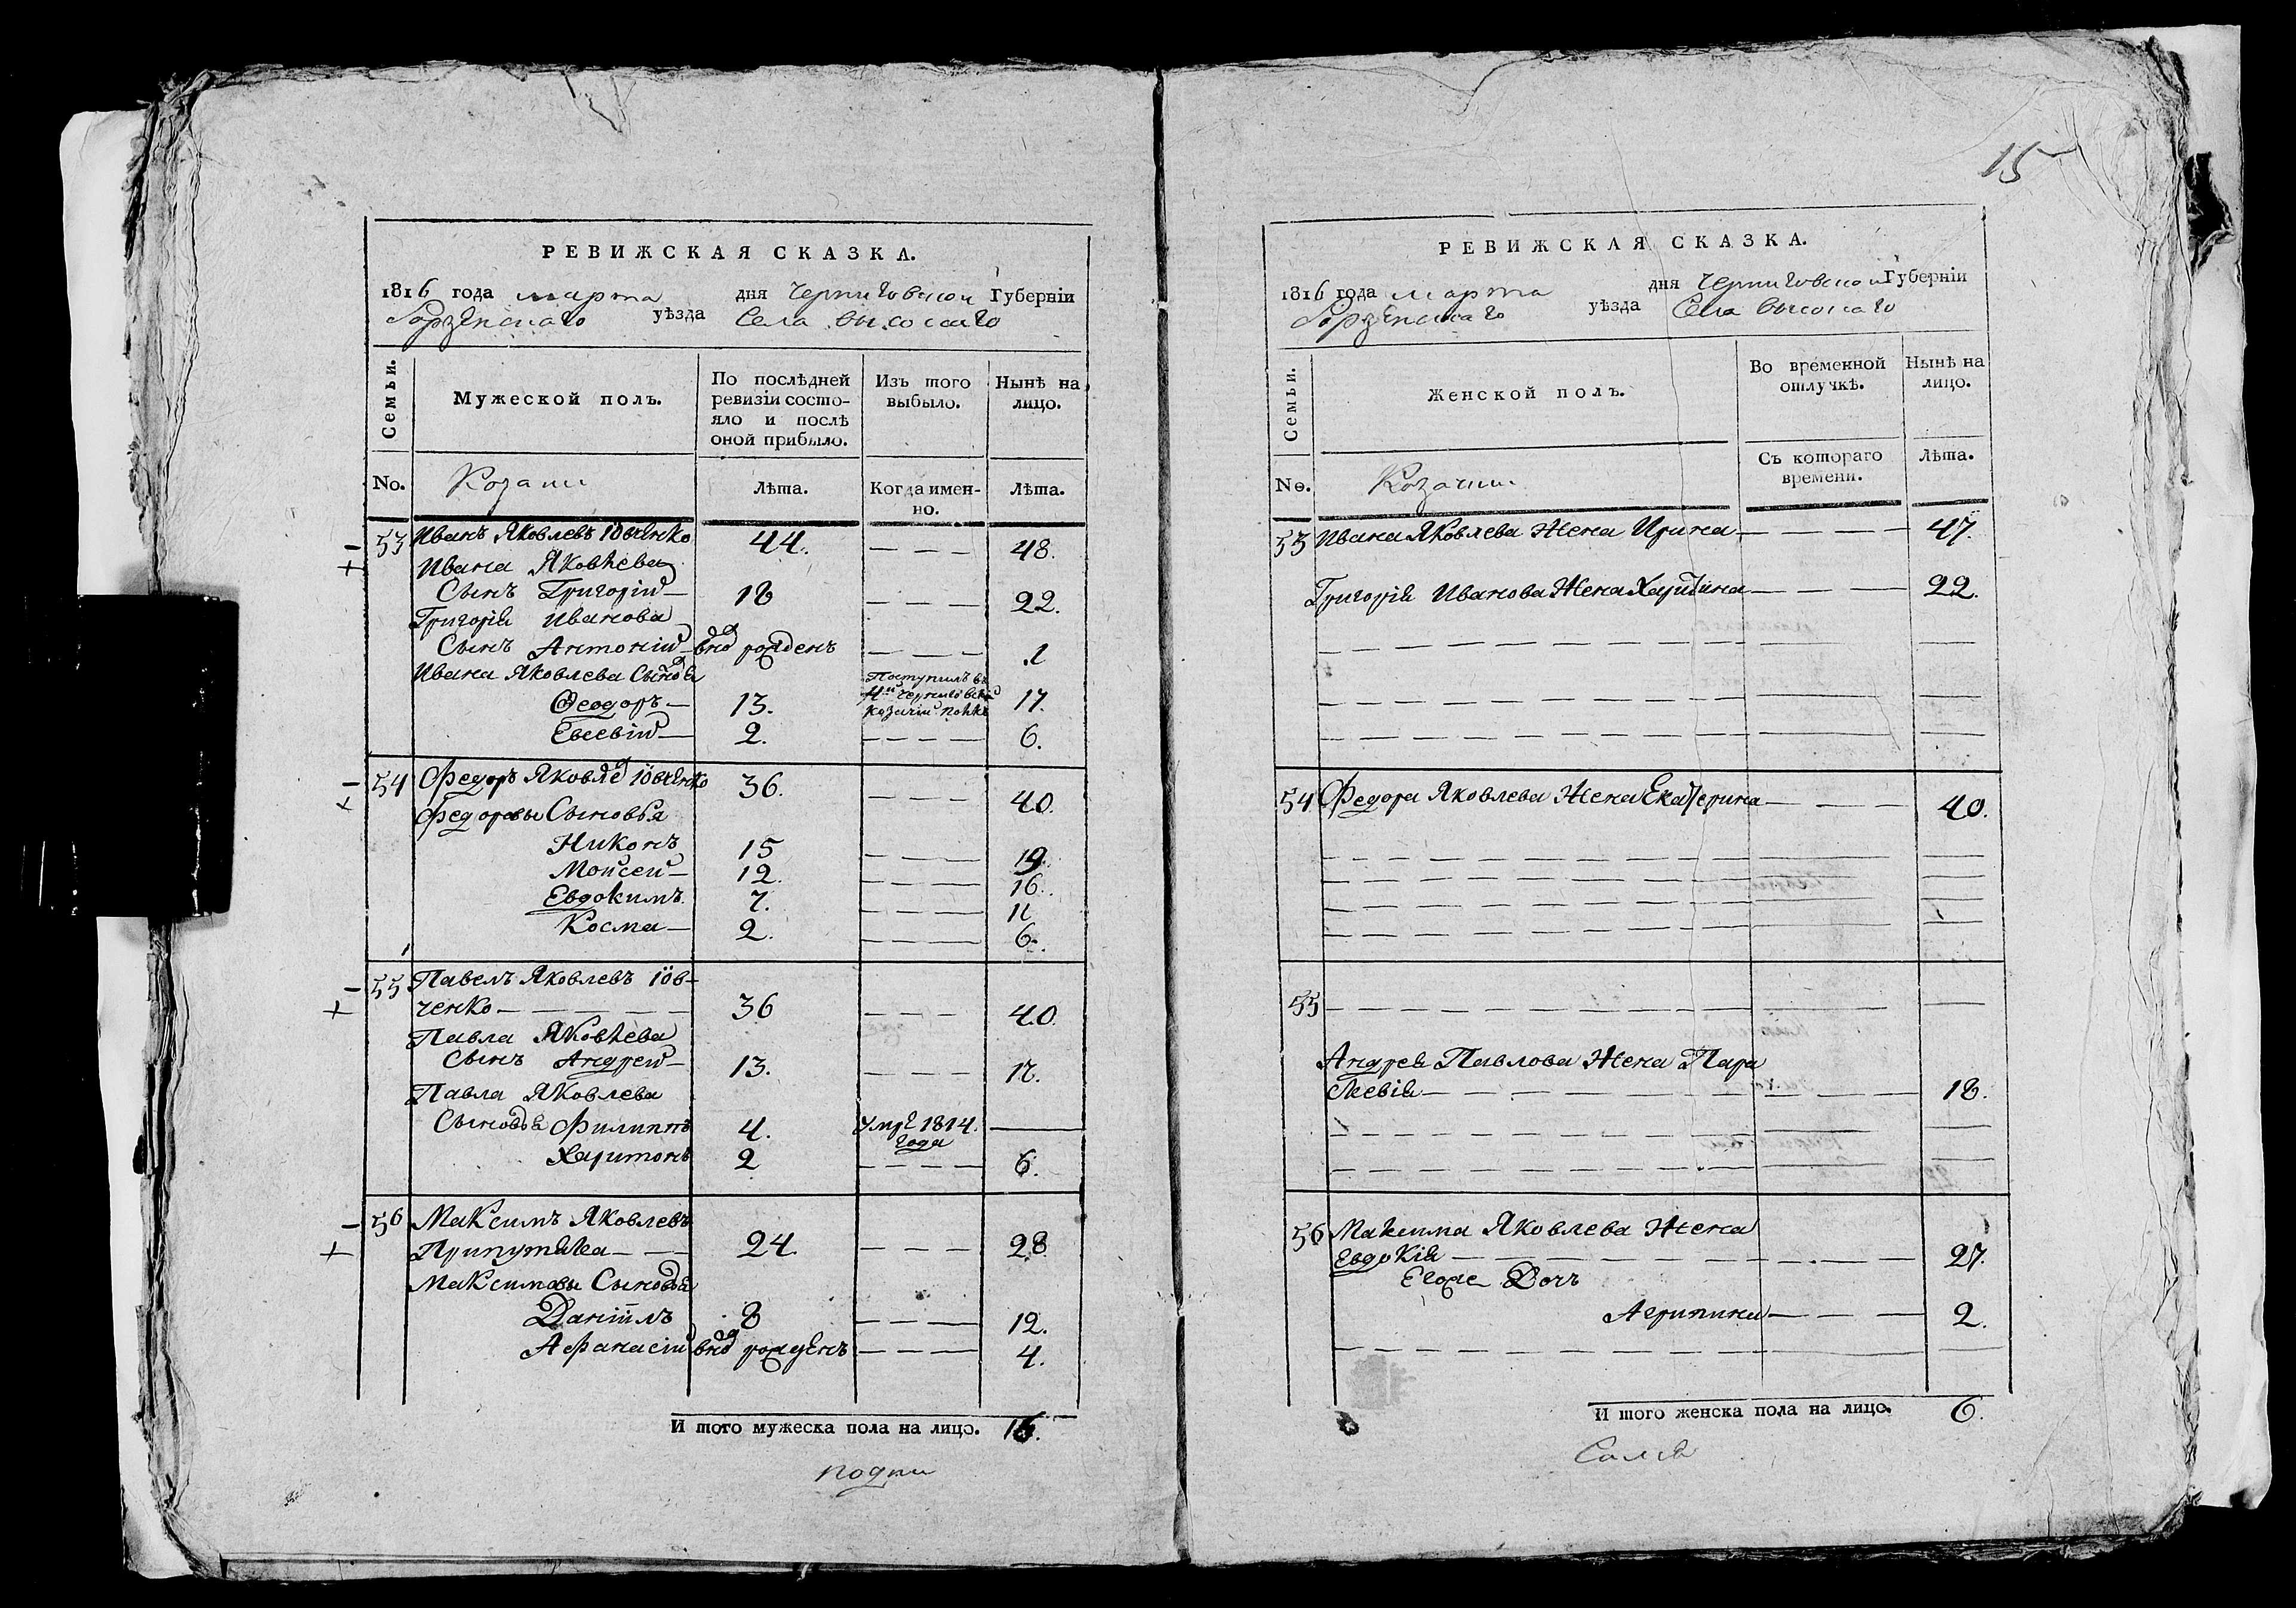 РЕВИЖСКАЯ СКАЗКА.
1816 года марта дня Черниговской Губерніи
Борзенскаго уѣзда Села высокаго
Семьи.
Мужеской полъ.
По послѣдней ревизіи состо-
яло и послѣ
оной прибыло.
Изъ того
выбыло.
Нынѣ на
лицо.
No.
Козаки
Лѣта.
Когда имен-
но.
Лѣта.
53 Иванъ Яковлевъ Іовченко 44. — — — 48.
Ивана Яковлева
Сынъ Григорій — 18 — — — 22.
Григорія Иванова
Сынъ Антоній — внов рожденъ — — — 1
Ивана Яковлева Сыновя
Феодоръ — 13. Поступилъ въ
Черниговскій
козачій полкъ 17.
Евсевій — 2. — — — — 6.
54 Федоръ Яковлев Іовченко 36. — — — 40.
Федоровы Сыновья
Никонъ 15 — — — 19.
Моисей — 12. — — — 16.
Евдокимъ 7. — — — 11
Косма — 2. — — — 6.
55 Павелъ Яковлевъ Іов-
ченко — — — — — 36 — — — 40.
Павла Яковлева
Сынъ Андрей — 13. — — — 17.
Павла Яковлева
Сыновья Филиппъ 4. умре 1814.
года —
Харитонъ 2 — — — — 6.
56 Максимъ Яковлевъ
Припутяка — — — 24. — — — 28
Максимовы Сыновья
Даніилъ 8 — — — 12.
Афанасій внов рожденъ — — — — 4.
И того мужеска пола на лицо. 16.
15
РЕВИЖСКАЯ СКАЗКА.
1816 года марта дня Черниговской Губерніи
Борзенскаго уѣзда Села высокаго
Семьи.
Женской полъ.
Во временной
отлучкѣ.
Нынѣ на
лицо.
No.
Козачки
Съ котораго
времени.
Лѣта.
53 Ивана Яковлева Жена Ирина — — — — 47.
Григорія Иванова Жена Харитина — — — — 22.
54 Федора Яковлева Жена Екатерина — — — — 40.
55
Андрея Павлова Жена Пара
скевія — — — — — — — — 18.
56 Максима Яковлева Жена
Евдокія — — — — — — — — 27.
Егоже Дочь
Агрипина — — — — 2.
И того женска пола на лицо. 6.